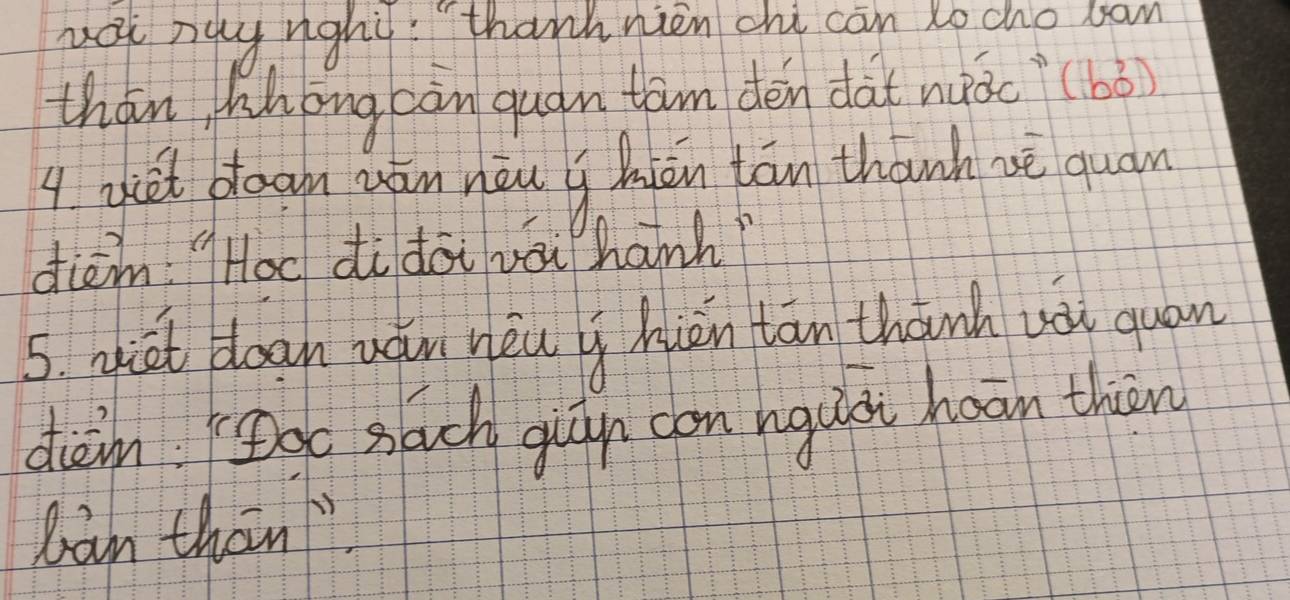 với suy nghĩ: "thanh niên chỉ cần lo cho bản
thân, không cần quan tâm đến đất nước" (bỏ)
4. viết đoạn văn nêu ý kiến tán thành về quan
điểm: "Học đi đôi với hành"
5. viết đoạn văn nêu ý kiến tán thành với quan
điểm: "Đọc sách giúp con người hoàn thiện
bản thân".